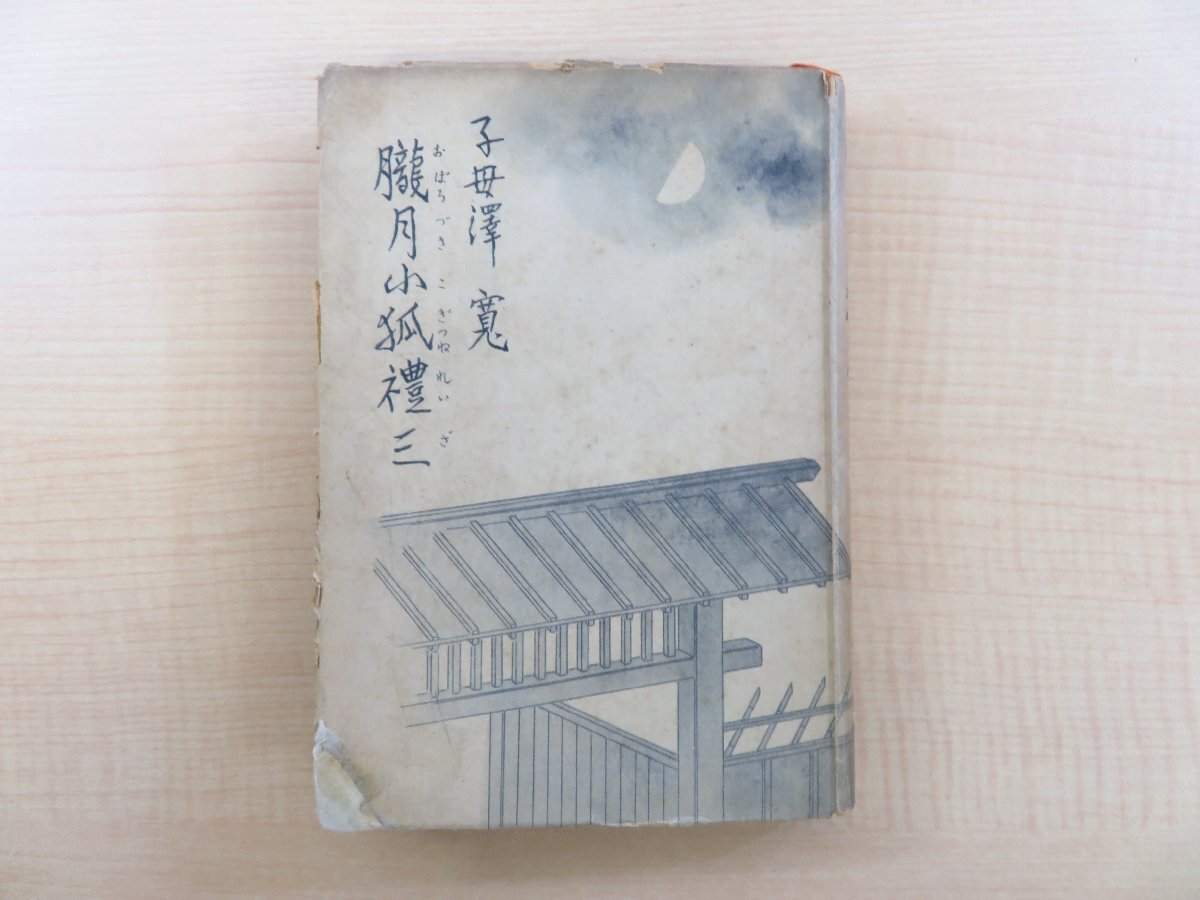 子母澤 寬
朧月小狐禮三
おぼろづきこぎつねれいざ